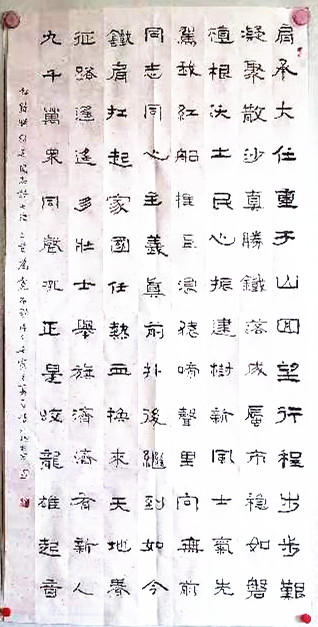 肩承大任重于山回望行程步步艱
凝聚散沙真勝鐵落成蜃市穩如磐
植根沃土民心振建樹新風士氣先
駕我紅船推巨浪猿啼聲里向無前
同志同心主義真前扑後繼到如今
鐵肩扛起家國任熱血換來天地春
征路遥遥多壯士舉旗濟濟有新人
九千萬衆同聲吼正是蛟龍雄起音